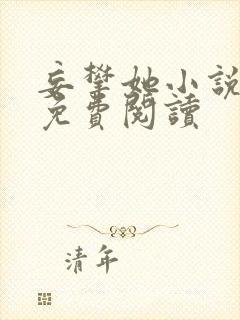 妄攀她小說
免費閱讀
清年